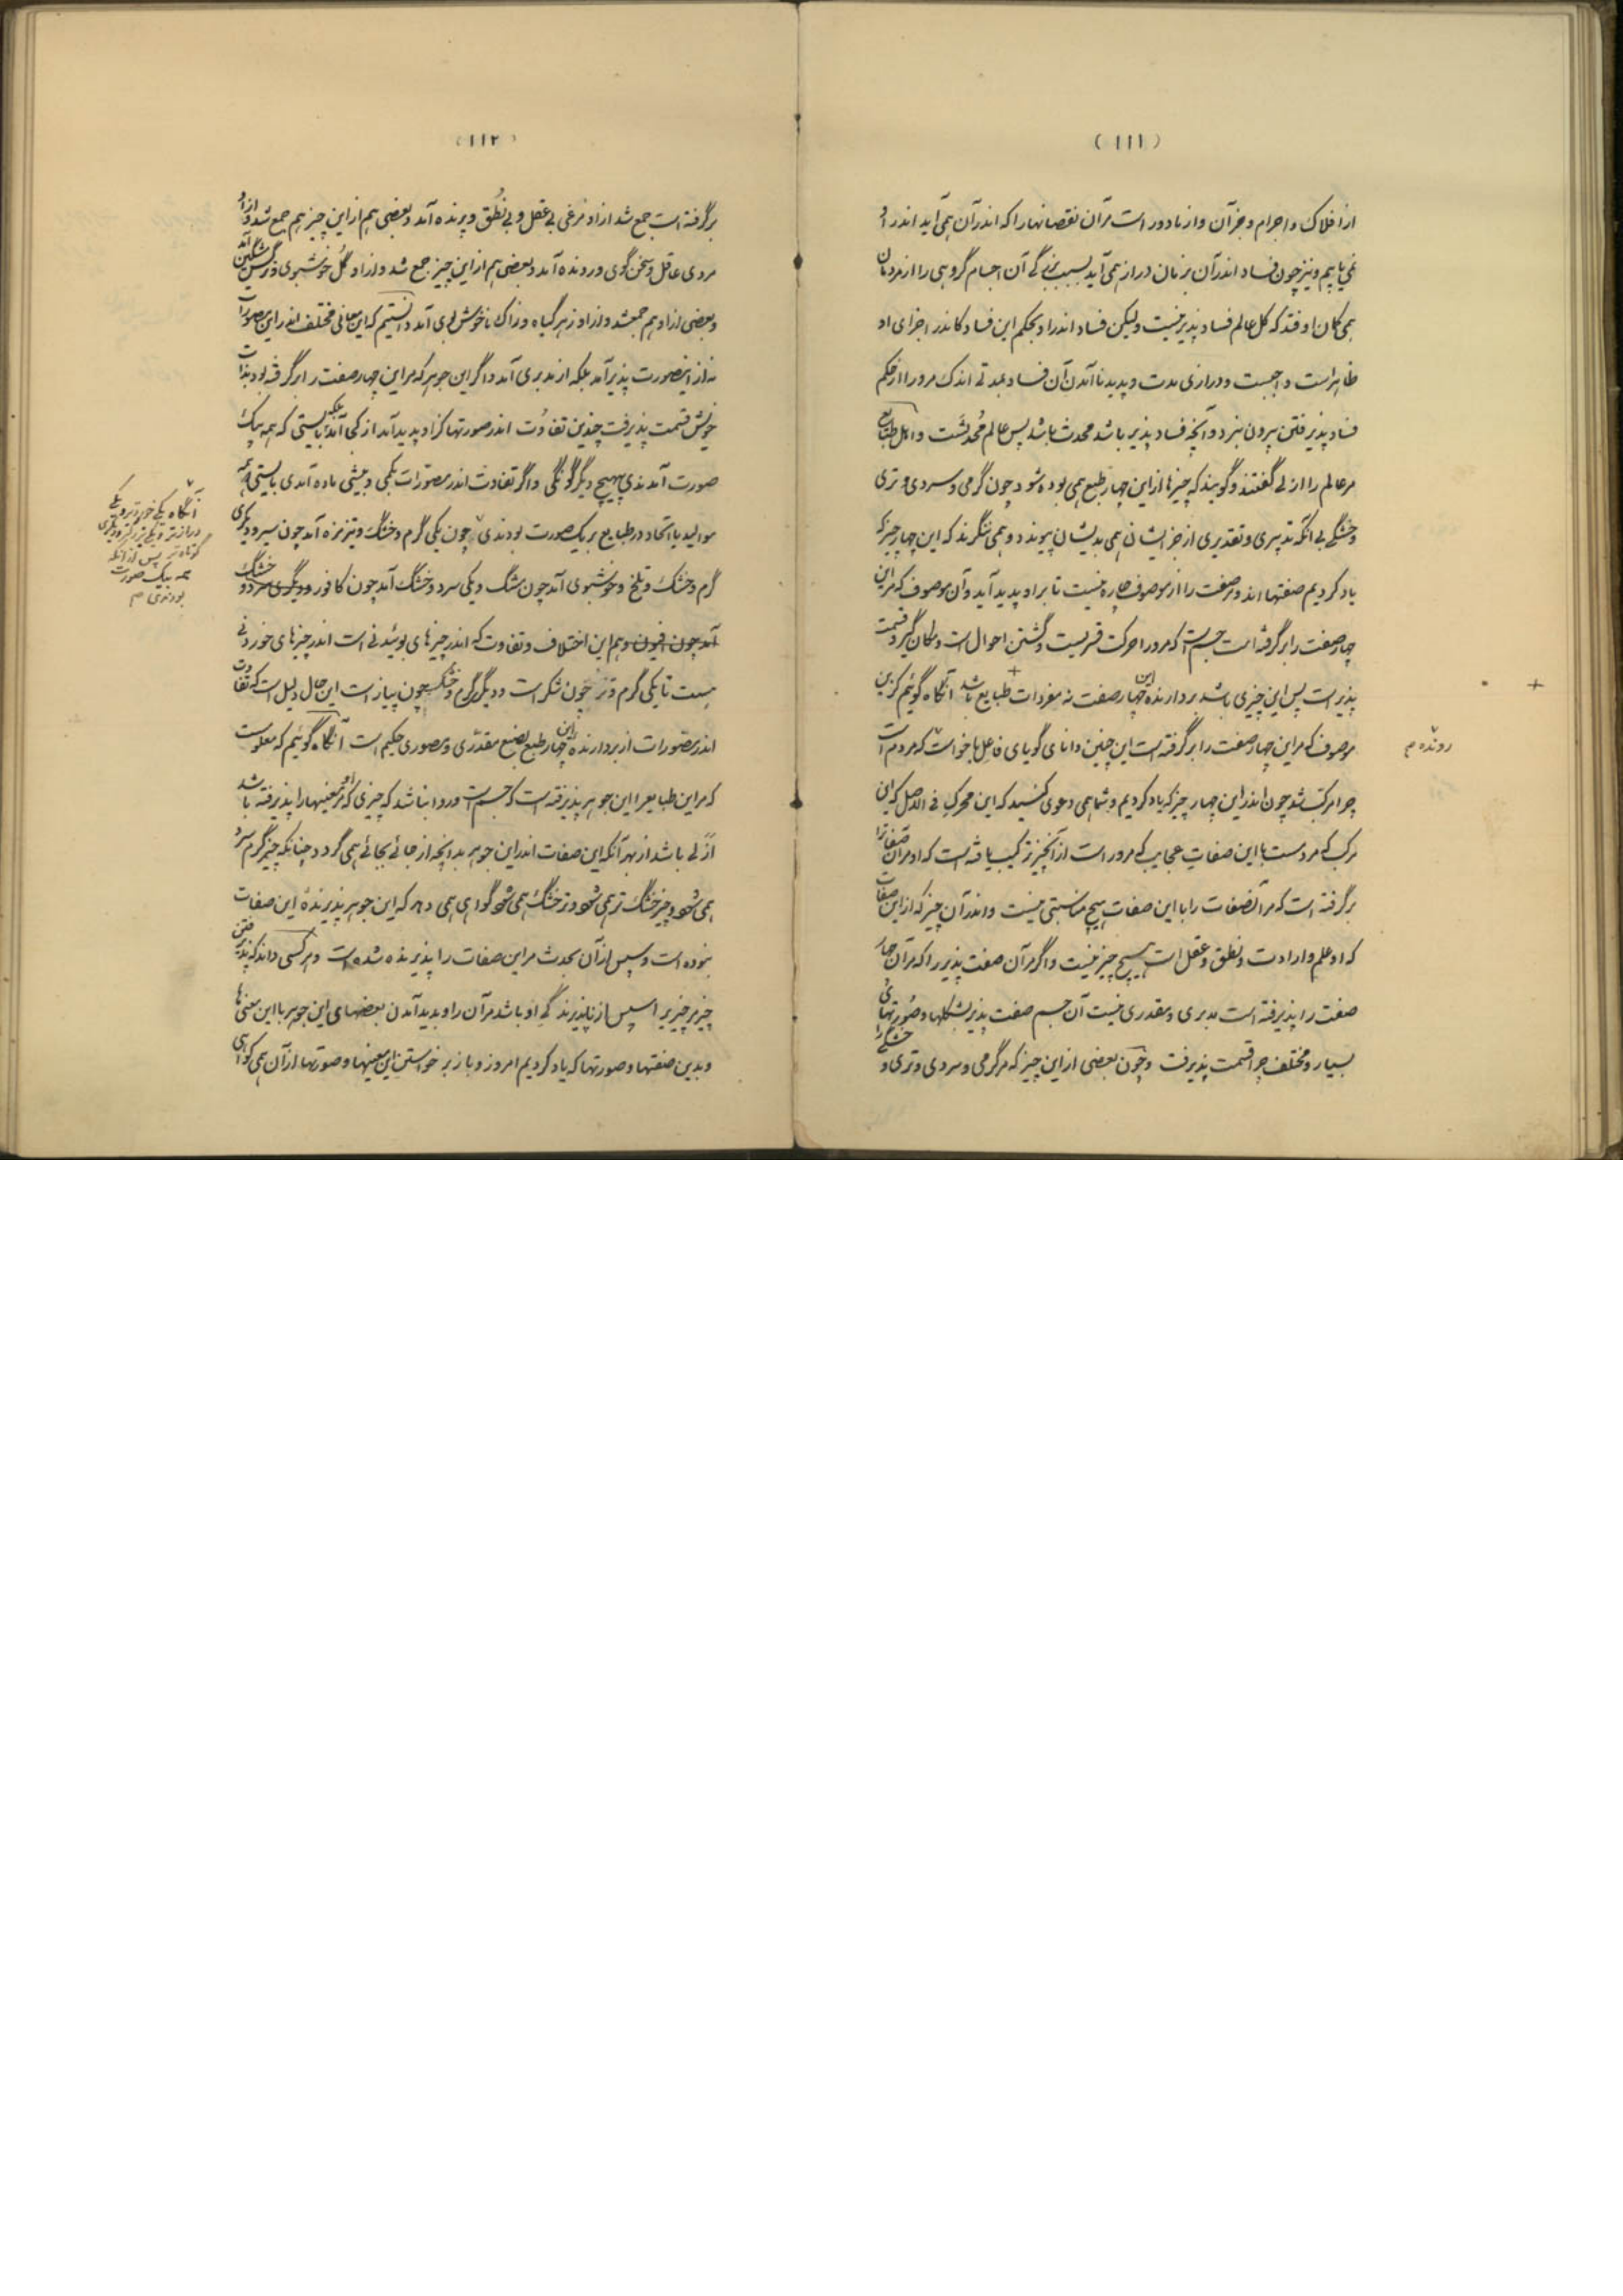 (۱۱۱)
از افلاک و اجرام و جز آن و از ما دور است مر آن نقصانها را که اندر آن همی آید اندر او
نمی یابیم و نیز چون فساد اندر آن بزمان دراز همی آید بسبب بزرگی آن اجسام گروهی را از مردمان
همی گمان اوفتد که کل عالم فساد پذیر نیست ولیکن فساد اندر او بحکم این فساد کاندر اجزای او
ظاهر است واجبست و درازی مدت و پدید نا آمدن آن فساد بمدتی اندک مرورا از حکم
فساد پذیرفتن بیرون نبرد و آنچه فساد پذیر باشد محدث باشد پس عالم محدثست و اهل طبایع
مر عالم را ازلی گفتند و گویند که چیزها از این چهار طبع همی بوده شود چون گرمی و سردی و تری
و خشگی بی آنکه تدبیری و تقدیری از جز ایشان همی بدیشان پیوندد و همی ننگرند که این چهار چیز که
یاد کردیم صفتها اند و مر صفت را از موصوف چاره نیست تا بر او پدید آید و آن موصوف که مر این
چهار صفت را بر گرفته است جسم است که مرورا حرکت قسریست و گشتن احوال است و مکان گیر و قسمت
پذیر است پس این چیزی باشد بردارنده این چهار صفت نه مفردات طبایع باشد آنگاه گوئیم کزین
موصوف که مر این چهار صفت را بر گرفته است این چنین دانای گویای فاعل باخواست که مردم است
چرا مرکب شد چون اندر این چهار چیز که یاد کردیم و شما همی دعوی کنید که این محرک فی الاصل که این
مرکب که مردست با این صفات عجایب که مروراست از آنچیز ترکیب یافته است که او مر آن صفتها را
برگرفته است که مر آنصفات را با این صفات هیچ مناسبتی نیست و اندر آن چیز که از این صفات
که او علم و ارادت و نطق و عقل است هیچ چیز نیست و اگر مر آن صفت پذیر را که مر آن چهار
صفت را پذیرفته است مدبری و مقدری نیست آن جسم صفت پذیر بشکلها و صورتهای
بسیار و مختلف چرا قسمت پذیرفت و چون بعضی از این چیز که مر گرمی و سردی و تری و خشگی را
رونده م
(۱۱۲)
برگرفته است جمع شد از او مرغی بی عقل و بی نطق و پرنده آمد و بعضی هم از این چیز هم جمع شد و از او
مردی عاقل و سخن گوی و رونده آمد و بعضی هم از این چیز جمع شد و از او گل خوشبوی و نرگس مشکین آمد
و بعضی از او هم جمعشد و از او زهر گیاه و زاک ناخوش بوی آمد دانستیم که این معانی مختلف اندر این مصورات
نه از این صورت پذیر آمد بلکه از مدبری آمد و اگر این جوهر که مر این چهار صفت را بر گرفته بود بذات
خویش قسمت پذیرفت چندین تفاوت اندر صورتها کز او پدید آمد از کجا آمد بلکه بایستی که همه بیک
صورت آمدندی بیهیچ دیگر گونگی و اگر تفاوت اندر مصورات بکمی و بیشی ماده آمدی بایستی که همه
موالید با اتحاد در طبایع بر یک صورت بودندی چون یکی گرم و خشگ و تیز مزه آمد چون سیر و دیگری
گرم و خشگ و تلخ و خوشبوی آمد چون مشگ و یکی سرد و خشگ آمد چون کافور و دیگری سرد و خشگ
آمد چون افیون و هم این اختلاف و تفاوت که اندر چیزهای بوئیدنی است اندر چیزهای خوردنی
هست تا یکی گرم و تر چون شکر است و دیگر گرم و خشگ چون پیاز است این حال دلیل است که تفاوت
اندر مصورات از بردارنده این چهار طبع بصنع مقدری و مصوری حکیم است آنگاه گوئیم که معلومست
که مر این طبایع را این جوهر پذیرفته است که جسم است و روا نباشد که چیزی که او مر معنیها را پذیرفته باشد
ازلی باشد از بهر آنکه این صفات اندر این جوهر بدانچه از جائی بجائی همی گردد چنانکه چیز گرم سرد
همی شود و چیز خشگ تر همی شود و تر خشگ همی شود گواهی همی دهد که این جوهر پذیرندهٔ این صفات
نبوده است و سپس از آن بحدث مر این صفات را پذیرنده شده است و هر کسی داند که پذیرفتن
چیز مر چیزیرا سپس از ناپذیرندگی او باشد مر آن را و بدید آمدن بعضهای این جوهر با این معنی ها
و بدین صفتها و صورتها که یاد کردیم امروز و باز برخواستن این معنیها و صورتها از آن همی گواهی
آنگاه یکی خوردتر و یکی
درازتر و یکی بزرگتر و دیگری
کوتاه تر پس از آنکه
همه بیک صورت
بودندی م